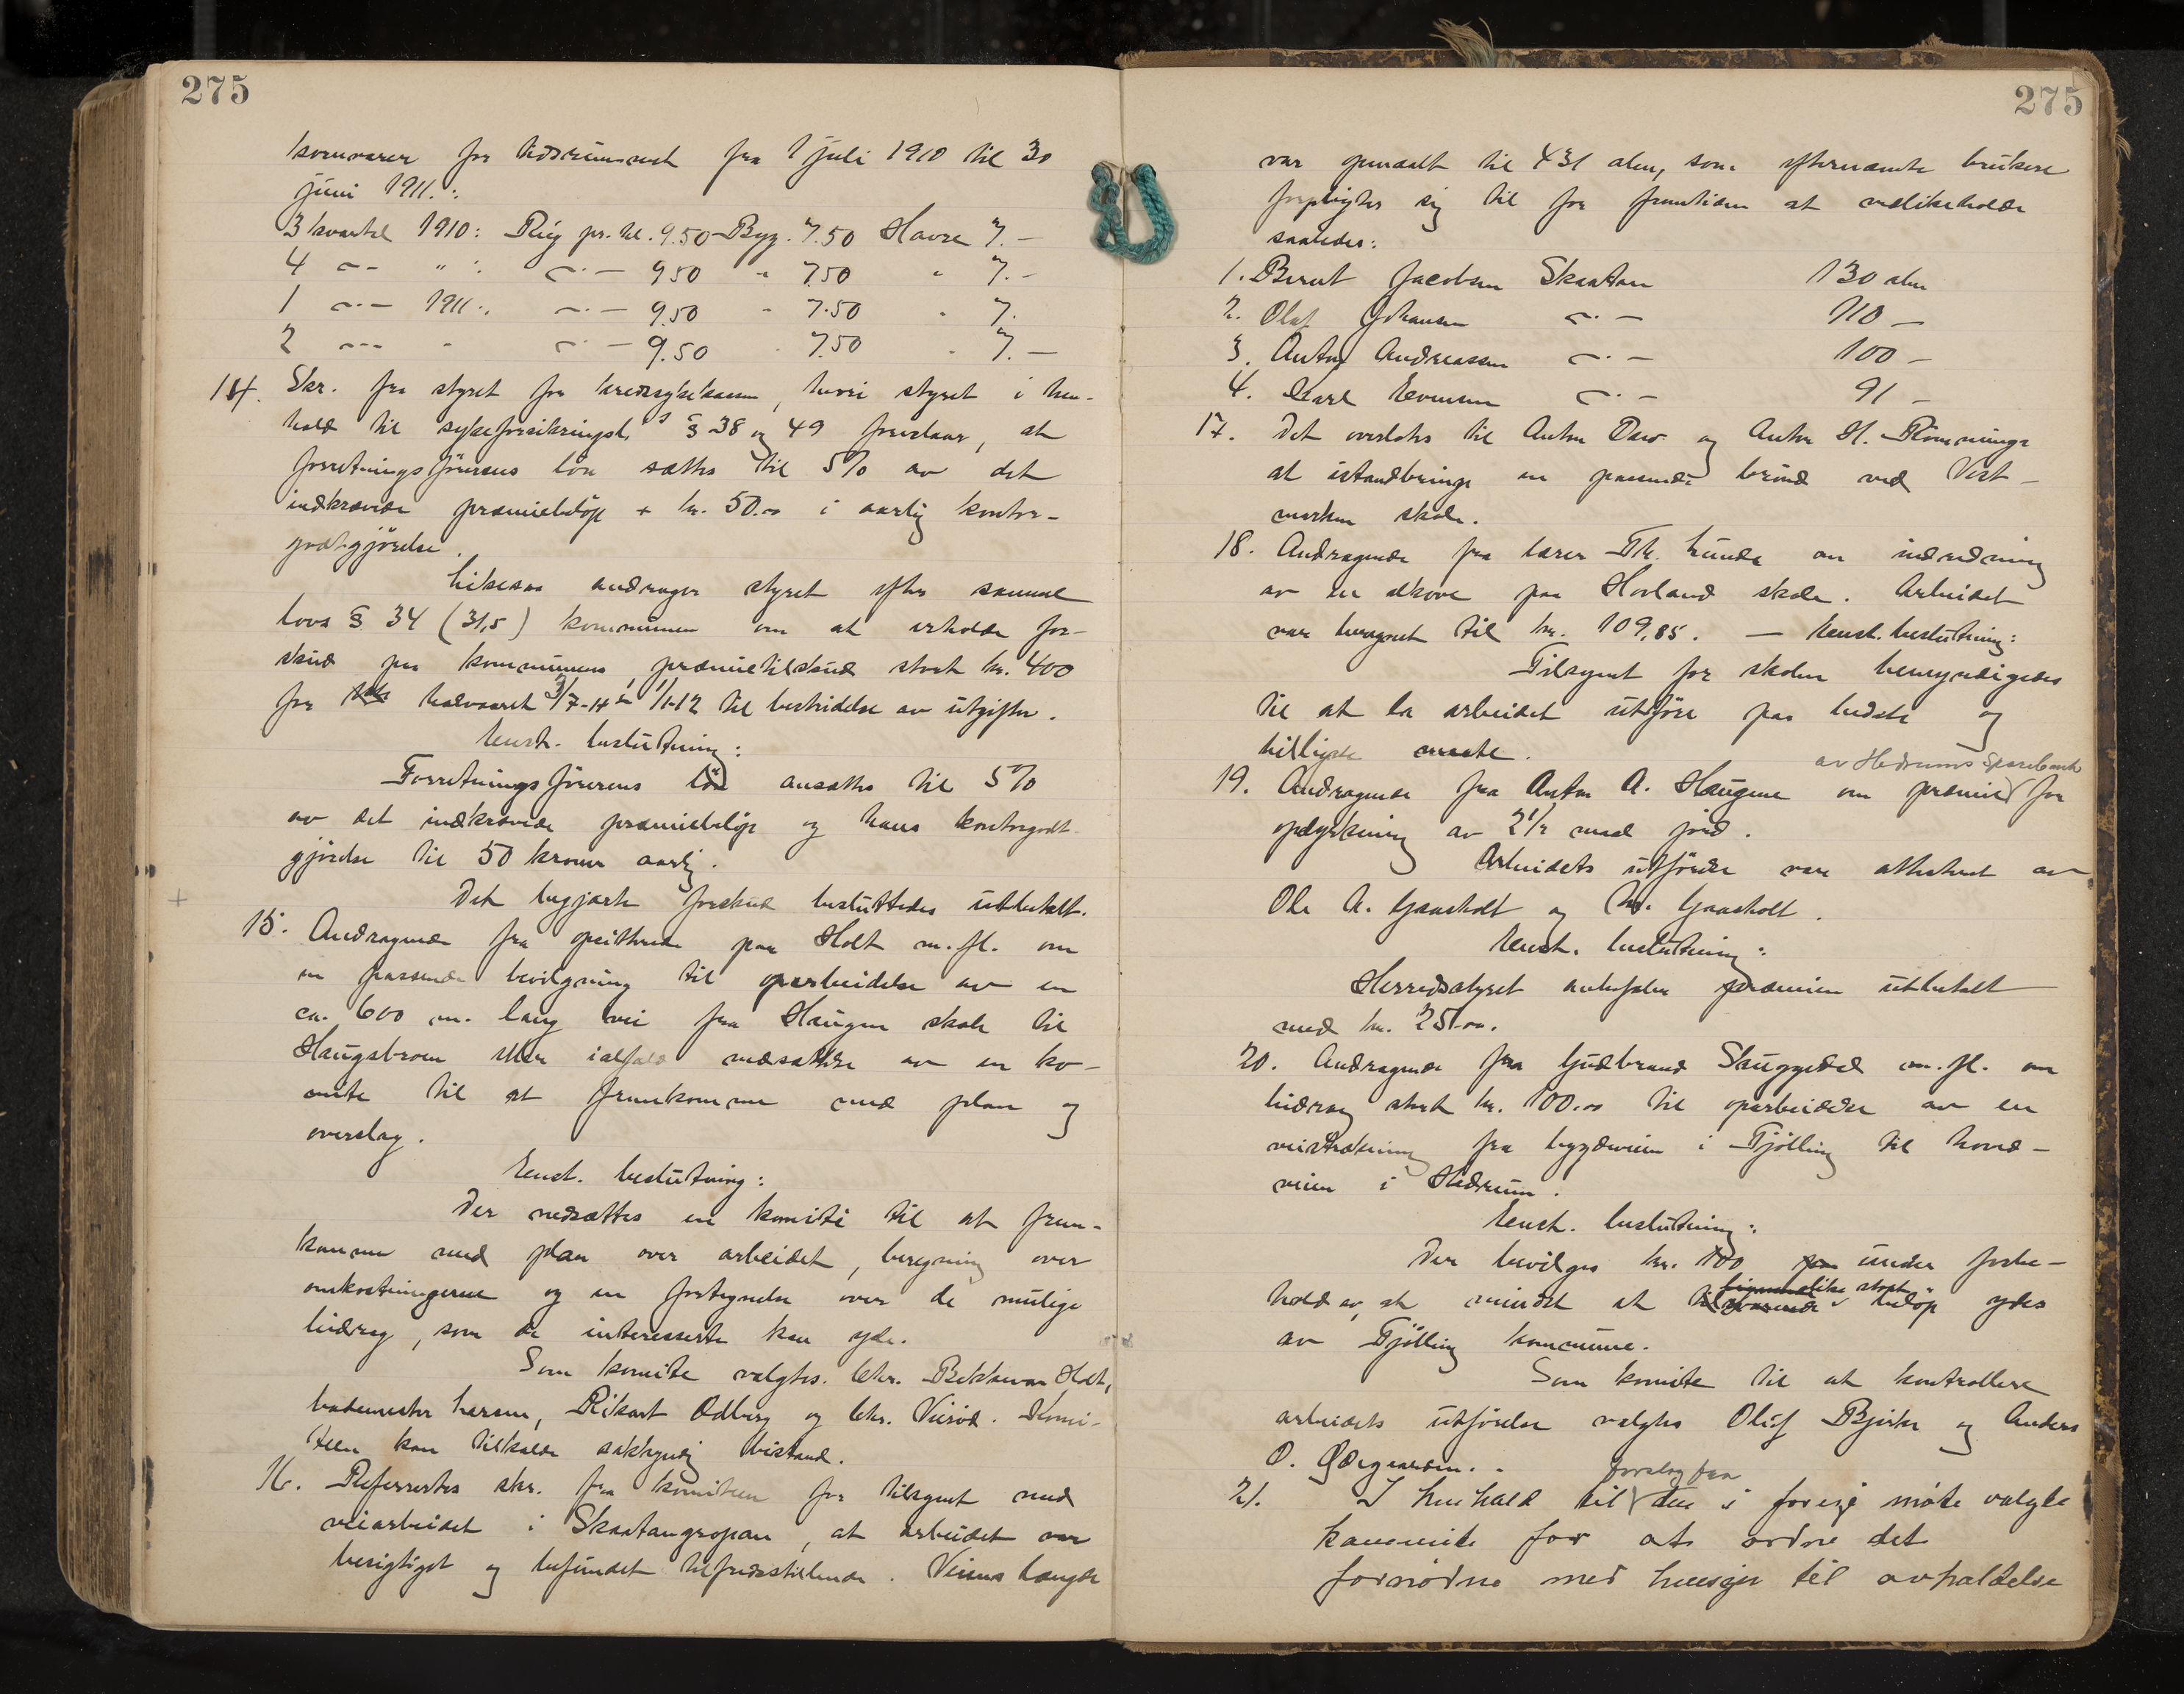 275
kornvarer for tidsrummet fra 1 juli 1910 til 30
juni 1911.:
3 kvartal 1910: Rug pr. hl. 9.50 Byg. 7.50 Havre 7.-
4 -"- " : -"- 950 " 750 " 7.-
1 -"- 1911: -"- 9.50 " 7.50 " 7.
2 -"- " -"- 9.50 " 7.50 " 7.-
14. Skr. fra styret for kredssykekassen, hvori styret i hen-
hold til sykeforsikringsl.s § 38 og 49 foreslaar, at
forretningsförerens lön sættes til 5% av det
indkrævede præmiebelöp + kr. 50.00 i aarlig kontor-
godtgjörelse.
Likesaa andrager styret efter samme
lovs § 34 (31,5) kommunen om at erholde for-
skud paa kommunens præmietilskud stort kr. 400
for halvaaret 3/7-11 - 1/1-12 til bestridelse av utgifter.
Enst. beslutning:
Forretningsförerens lön ansættes til 5%
av det indkrævede præmiebelöp og hans kontorgodt-
gjörelse til 50 kroner aarlig.
Det begjærte forskud besluttedes utbetalt.
15. Andragende fra opsittere paa Holt m.fl. om
en passende bevilgning til oparbeidelse av en
ca. 600 m. lang vei fra Haugen skole til
Haugsbroen eller ialfald nedsættelse av en ko-
mite til at fremkomme med plan og
overslag.
Enst. beslutning:
Der nedsættes en komité til at frem-
komme med plan over arbeidet, beregning over
omkostningerne og en fortegnelse over de mulige
bidrag, som de interesserte kan yde.
Som komite valgtes. lhr. Bekkevar Holt,
bademester Larsen, Rikart Odberg og lhr. Veiröd. Komi-
teen kan tilkalde sakkyndig bistand.
16. Referertes skr. fra komiteen for tilsynet med
veiarbeidet i Skaatangropan, at arbeidet var
besigtiget og befundet tilfredsstillende. Veiens længde
275
var opmaalt til 431 alen, som efternævnte brukere
forpligter sig til for fremtiden at vedlikeholde
saaledes:
1. Berut Jacobsen Skaatan 130 alen
2. Olaf Johansen -"- 110 -
3. Anton Andreassen -"- 100 -
4. Karl Evensen -"- 91 -
17. Det overlates til Anton og Anton H. Rimminge
at istandbringe en passende brönd ved Vest-
marken skole.
18. Andragende fra lærer Th. Lunde om indredning
av en alkove paa Hovland skole. Arbeidet
var beregnet til kr. 109,85. — Enst. beslutning:
Tilsynet for skolen bemyndigedes
til at la arbeidet utföre paa bedste og
billigste maate.
av Hedrums Sparebank
19. Andragende fra Anton A. Haugene om præmie for
opdyrkning av 2 1/2 maal jord.
Arbeidets utförelse var attestert av
Ole A. Gaasholt og Chr. Gaasholt.
Enst. beslutning:
Herredsstyret anbefaler præmien utbetalt
med kr. 25.00.
20. Andragende fra Gudbrand Skuggedal m.fl. om
bidrag stort kr. 100.00 til oparbeidelse av en
veistrækning fra bygdeveien i Tjölling til hoved-
veien i Hedrum.
Enst. beslutning:
Der bevilges kr. 100 under forbe-
hold av, at mindst et likestort belöp ydes
av Tjölling kommune.
Som komite til at kontrollere
arbeidets utförelse valgtes Oluf Bjerke og Anders
O. Jörgensen.
forslag fra
21. I henhold til den i forrige möte valgte
kommite for at ordne det
fornödne med hensyn til avholdelse